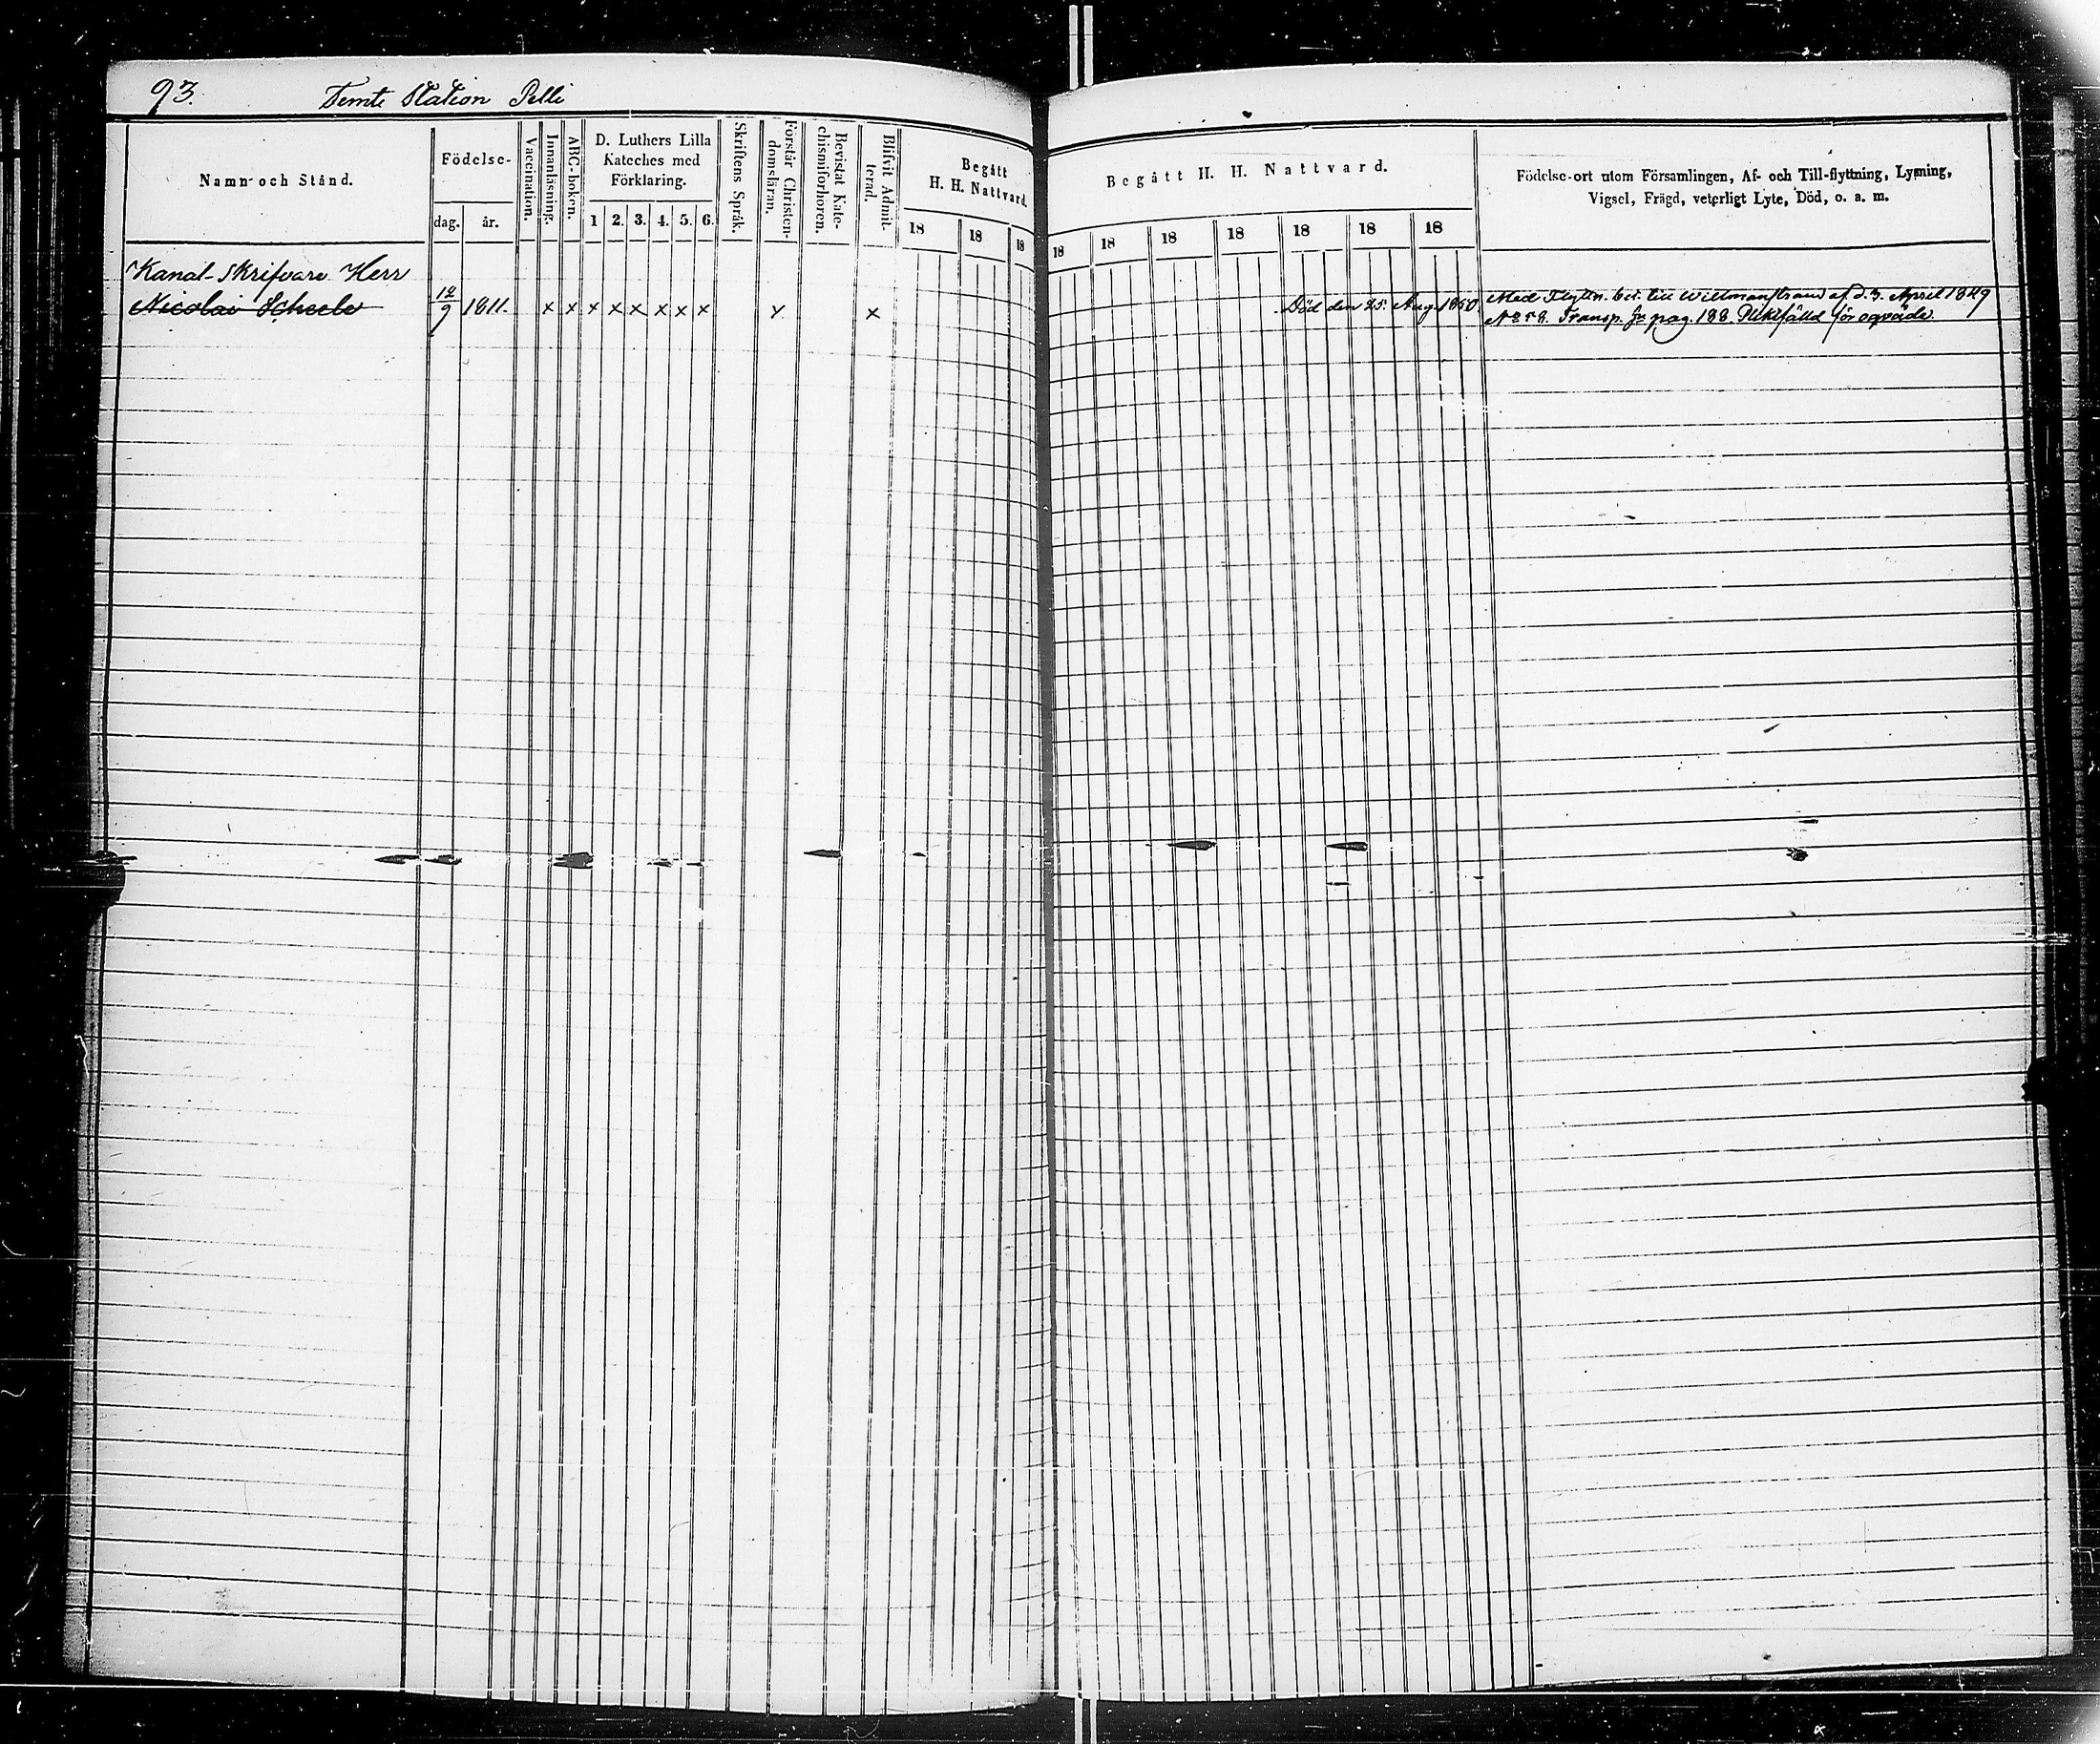 93. Femte Station Pelli
Namn och Stånd.
Födelse-
dag. år.
Vaccination.
Innanläsning.
ABC-boken.
D. Luthers Lilla
Kateches med
Förklaring.
1 2. 3. 4. 5. 6.
Skriftens Språk.
Förstår Christen-
domsläran.
Bevistat Kate-
chismiförhören.
Blifvit Admit-
terad.
Begått
H. H. Nattvard.
18 18 18
Begått H. H. Nattvard.
18 18 18 18 18 18 18
Födelse-ort utom Församlingen, Af- och Till-flyttning, Lysning,
Vigsel, Frägd, veterligt Lyte, Död, o. a. m.
Kanal-Skrifvare Herr
Nicolai Scheele 12/9 1811. x x x x x x x x x x Död den 25. Aug. 1850.
Med Flyttn. bet. till Willmanstrand af d. 3. April 1849
Transp. fr pag. 188.